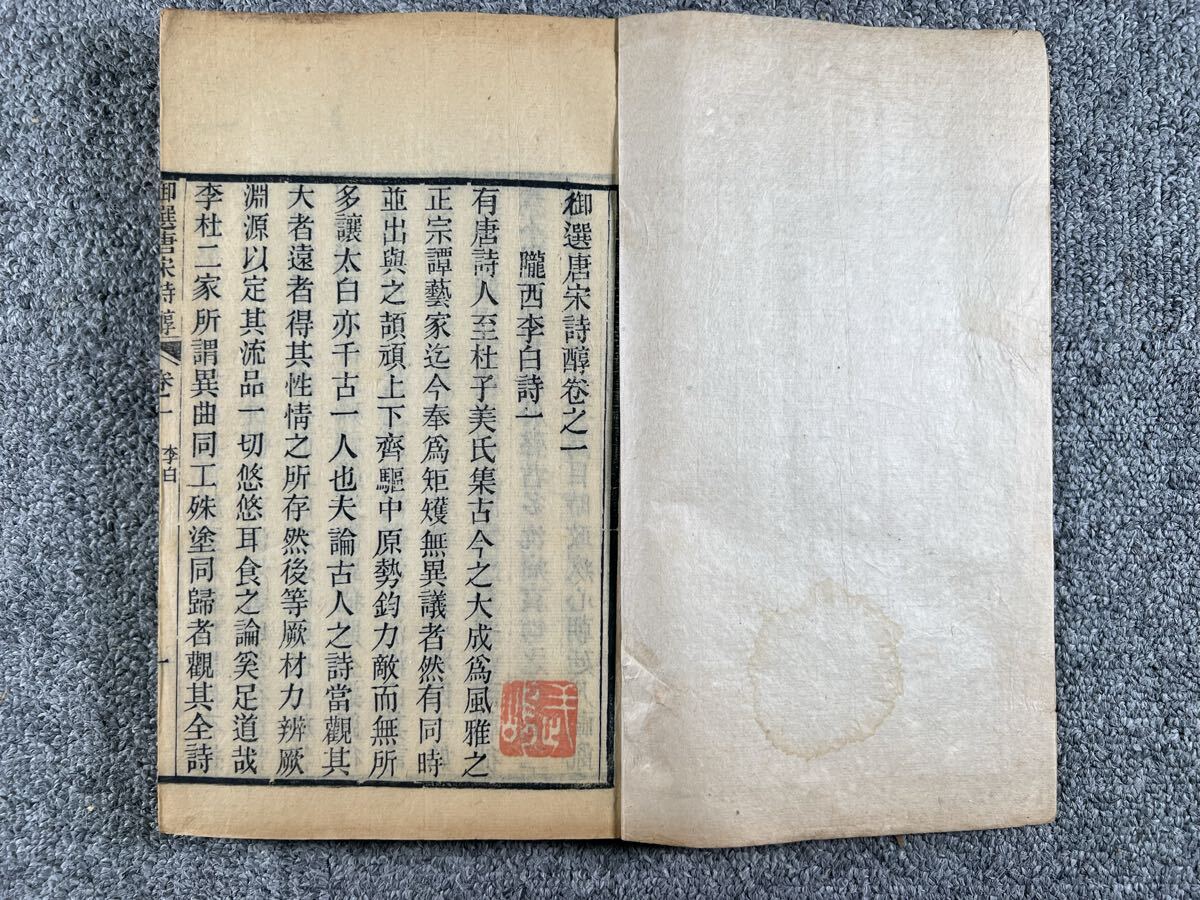 御選唐宋詩醇卷之一
隴西李白詩一
有唐詩人至杜子美氏集古今之大成爲風雅之
正宗譚藝家迄今奉爲矩矱無異議者然有同時
並出與之頡頏上下齊驅中原勢鈞力敵而無所
多讓太白亦千古一人也夫論古人之詩當觀其
大者遠者得其性情之所存然後等厥材力辨厥
淵源以定其流品一切悠悠耳食之論奚足道哉
李杜二家所謂異曲同工殊塗同歸者觀其全詩
御選唐宋詩醇
李白
一